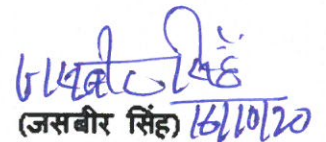 जसबीर सिंह
(जसबीर सिंह) 16/10/20